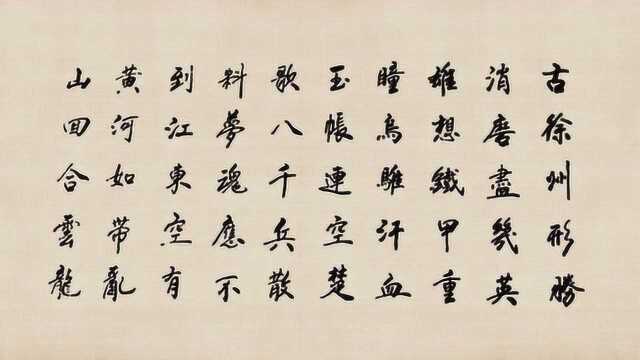 古徐州形勝
消磨盡幾英
雄想鐵甲重
瞳烏騅汗血
玉帳連空楚
歌八千兵散
料夢魂應不
到江東空有
黄河如帶亂
山回合雲龍